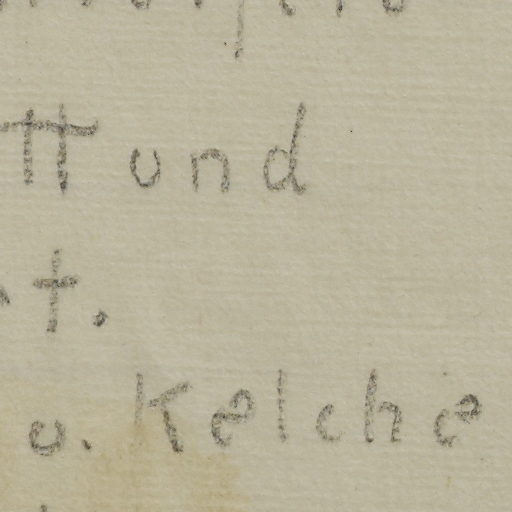 tt und
t.
u. Kelche